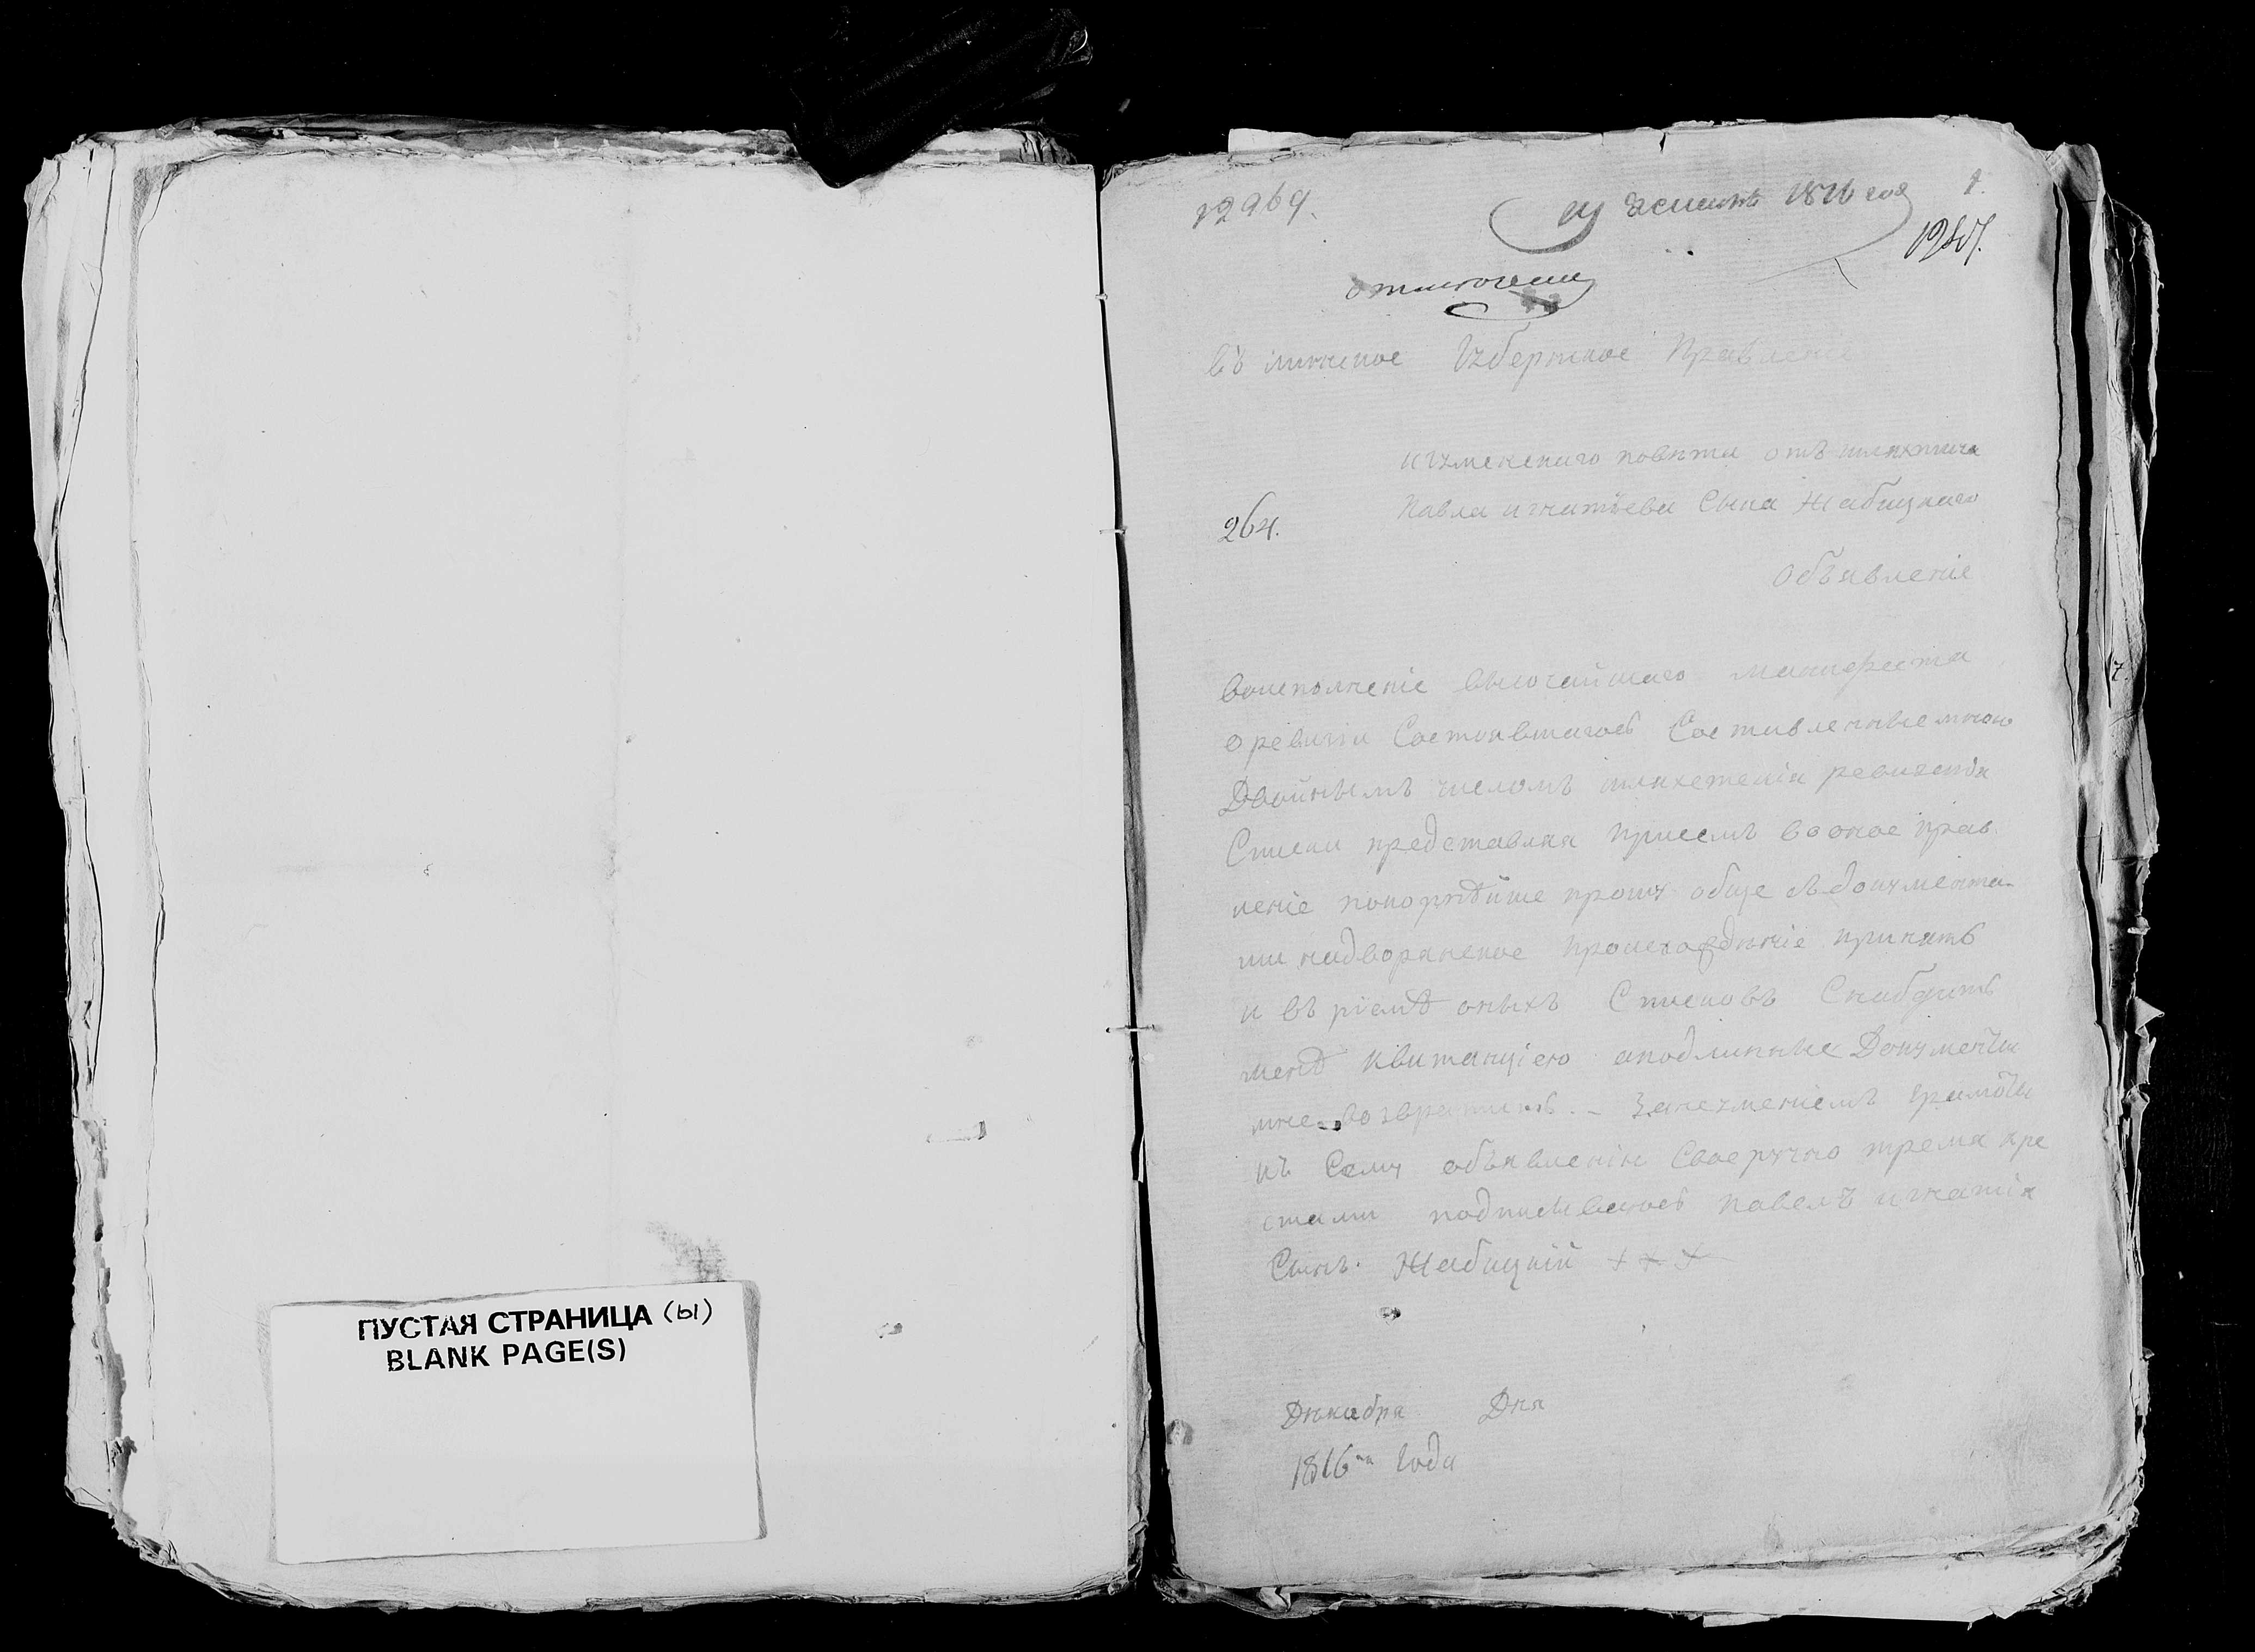 ПУСТАЯ СТРАНИЦА (ы)
BLANK PAGE(S)
12969.
1816 года
1.
въ минское Губернское Правление
игуменскаго повѣта отъ шляхтича
Павла игнатьева Сына Жабицкаго
264.
Объявленіе
воисполненіе высочайшаго манифеста
о ревизіи Состоявшагося Составленные мною
Двойнымъ числомъ шляхетскія ревизскія
Списки представляя присемъ вооное прав
леніе покорнѣйше прошу обще съ документа
ми надворянское происхождѣніе принять
и въ ріемѣ оныхъ Списковъ Снабдить
менѣ квитанціею аподлинные Документы
мне возвратить. – Занеумениемъ грамоты
къ Сему объявлению Своеручно тремя кре
стами подписываюсь павелъ игнатія
Сынъ. Жабицкій + + +
Дѣкабря Дня
1816 года
7.